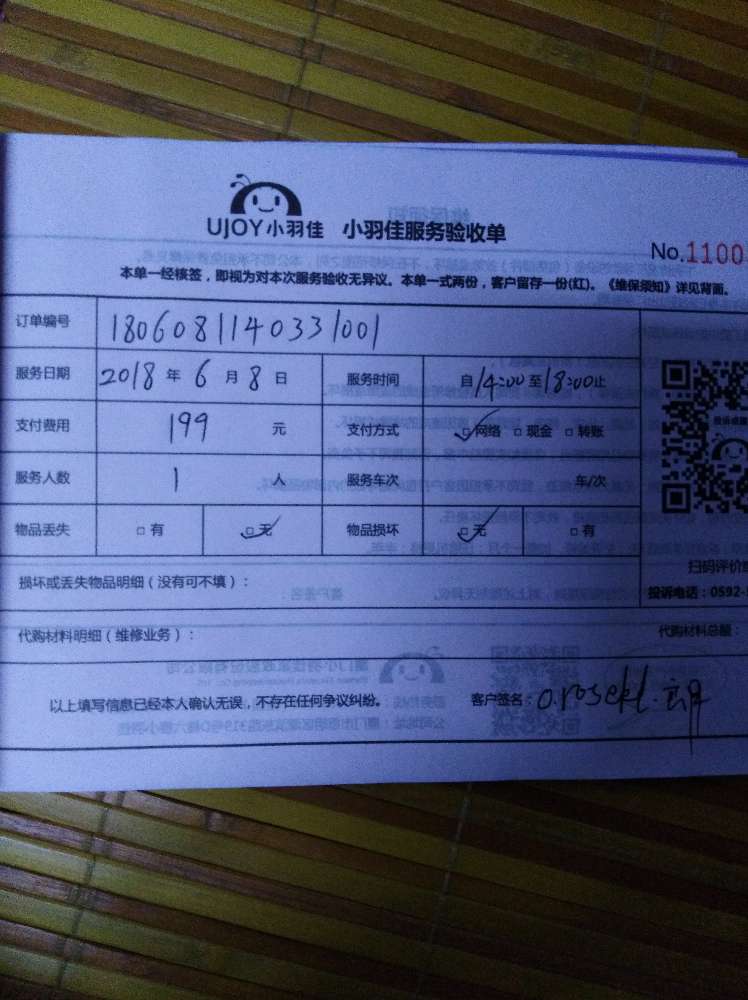 UJOY小羽佳 小羽佳服务验收单
No.1100
本单一经核签，即视为对本次服务验收无异议。本单一式两份，客户留存一份(红)。《维保须知》详见背面。
订单编号 1806081140331001
服务日期 2018 年 6 月 8 日 服务时间 自 14:00 至 18:00 止
支付费用 199 元 支付方式 ☑网络 □现金 □转账
服务人数 1 人 服务车次 车/次
物品丢失 □有 ☑无 物品损坏 ☑无 □有
损坏或丢失物品明细（没有可不填）：
扫码评价
投诉电话：0592-
代购材料明细（维修业务）： 代购材料总额：
以上填写信息已经本人确认无误，不存在任何争议纠纷。 客户签名：